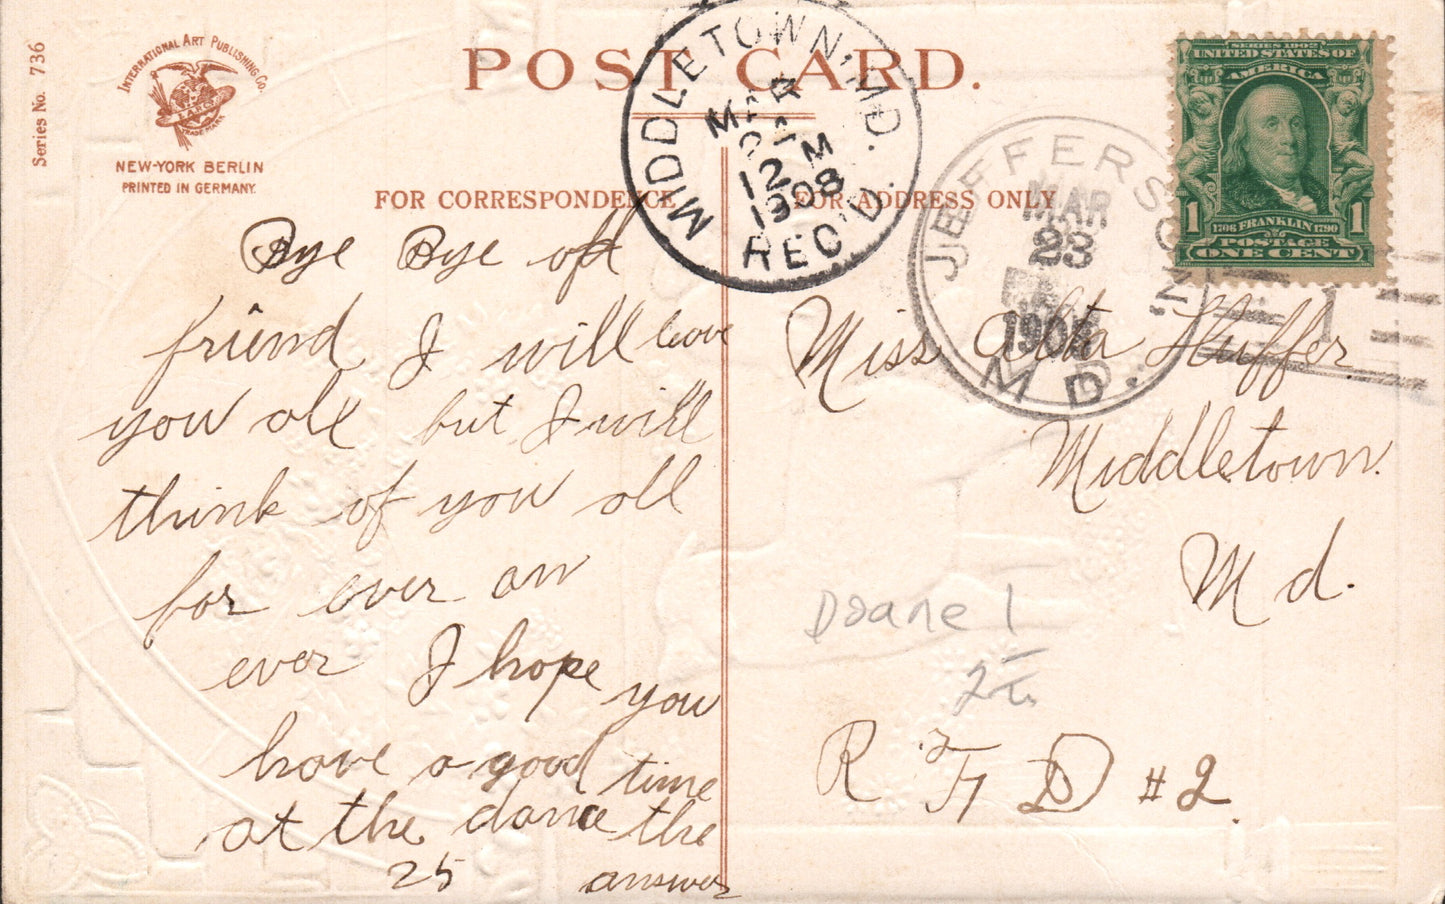 Series No. 736
INTERNATIONAL ART PUBLISHING CO.
TRADE MARK
NEW-YORK BERLIN
PRINTED IN GERMANY.
POST CARD.
FOR CORRESPONDENCE
FOR ADDRESS ONLY
MIDDLETOWN, MD.
MAR
12 M
1908
REC'D.
JEFFERSON,
MAR
23
1908
MD.
SERIES 1902
UNITED STATES OF
AMERICA
1 1706 FRANKLIN 1790 1
POSTAGE
ONE CENT
1
Bye Bye old
friend I will leave
you all but I will
think of you all
for ever an
ever I hope you
have a good time
at the dance the
25 answer
Miss Alta Huffer
Middletown.
Md.
R F D #2.